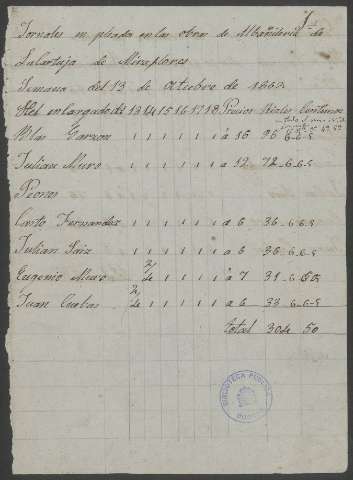 Jornales m pleados en las obras de Albañileria de
La Cartuja de Miraflores
Semana del 13 de Octubre de 1862
13 14 15 16 17 18 Precios Reales Centimos
Blas Garzon 1 1 1 1 1 1 á 16 96 6-6-5
Julian Muro 1 1 1 1 1 1 á 12 72 6-6-5
Peones
Fernandez 1 1 1 1 1 1 a 6 36 6-6-5
Julian Saiz 1 1 1 1 1 1 a 6 36 6-6-5
Eugenio Muro 1 1 1 1 1 á 7
Juan Cuebas 1 1 1 1 1 a 6 33 6-6-5
total 50
BIBLIOTECA PUBLICA
BURGOS